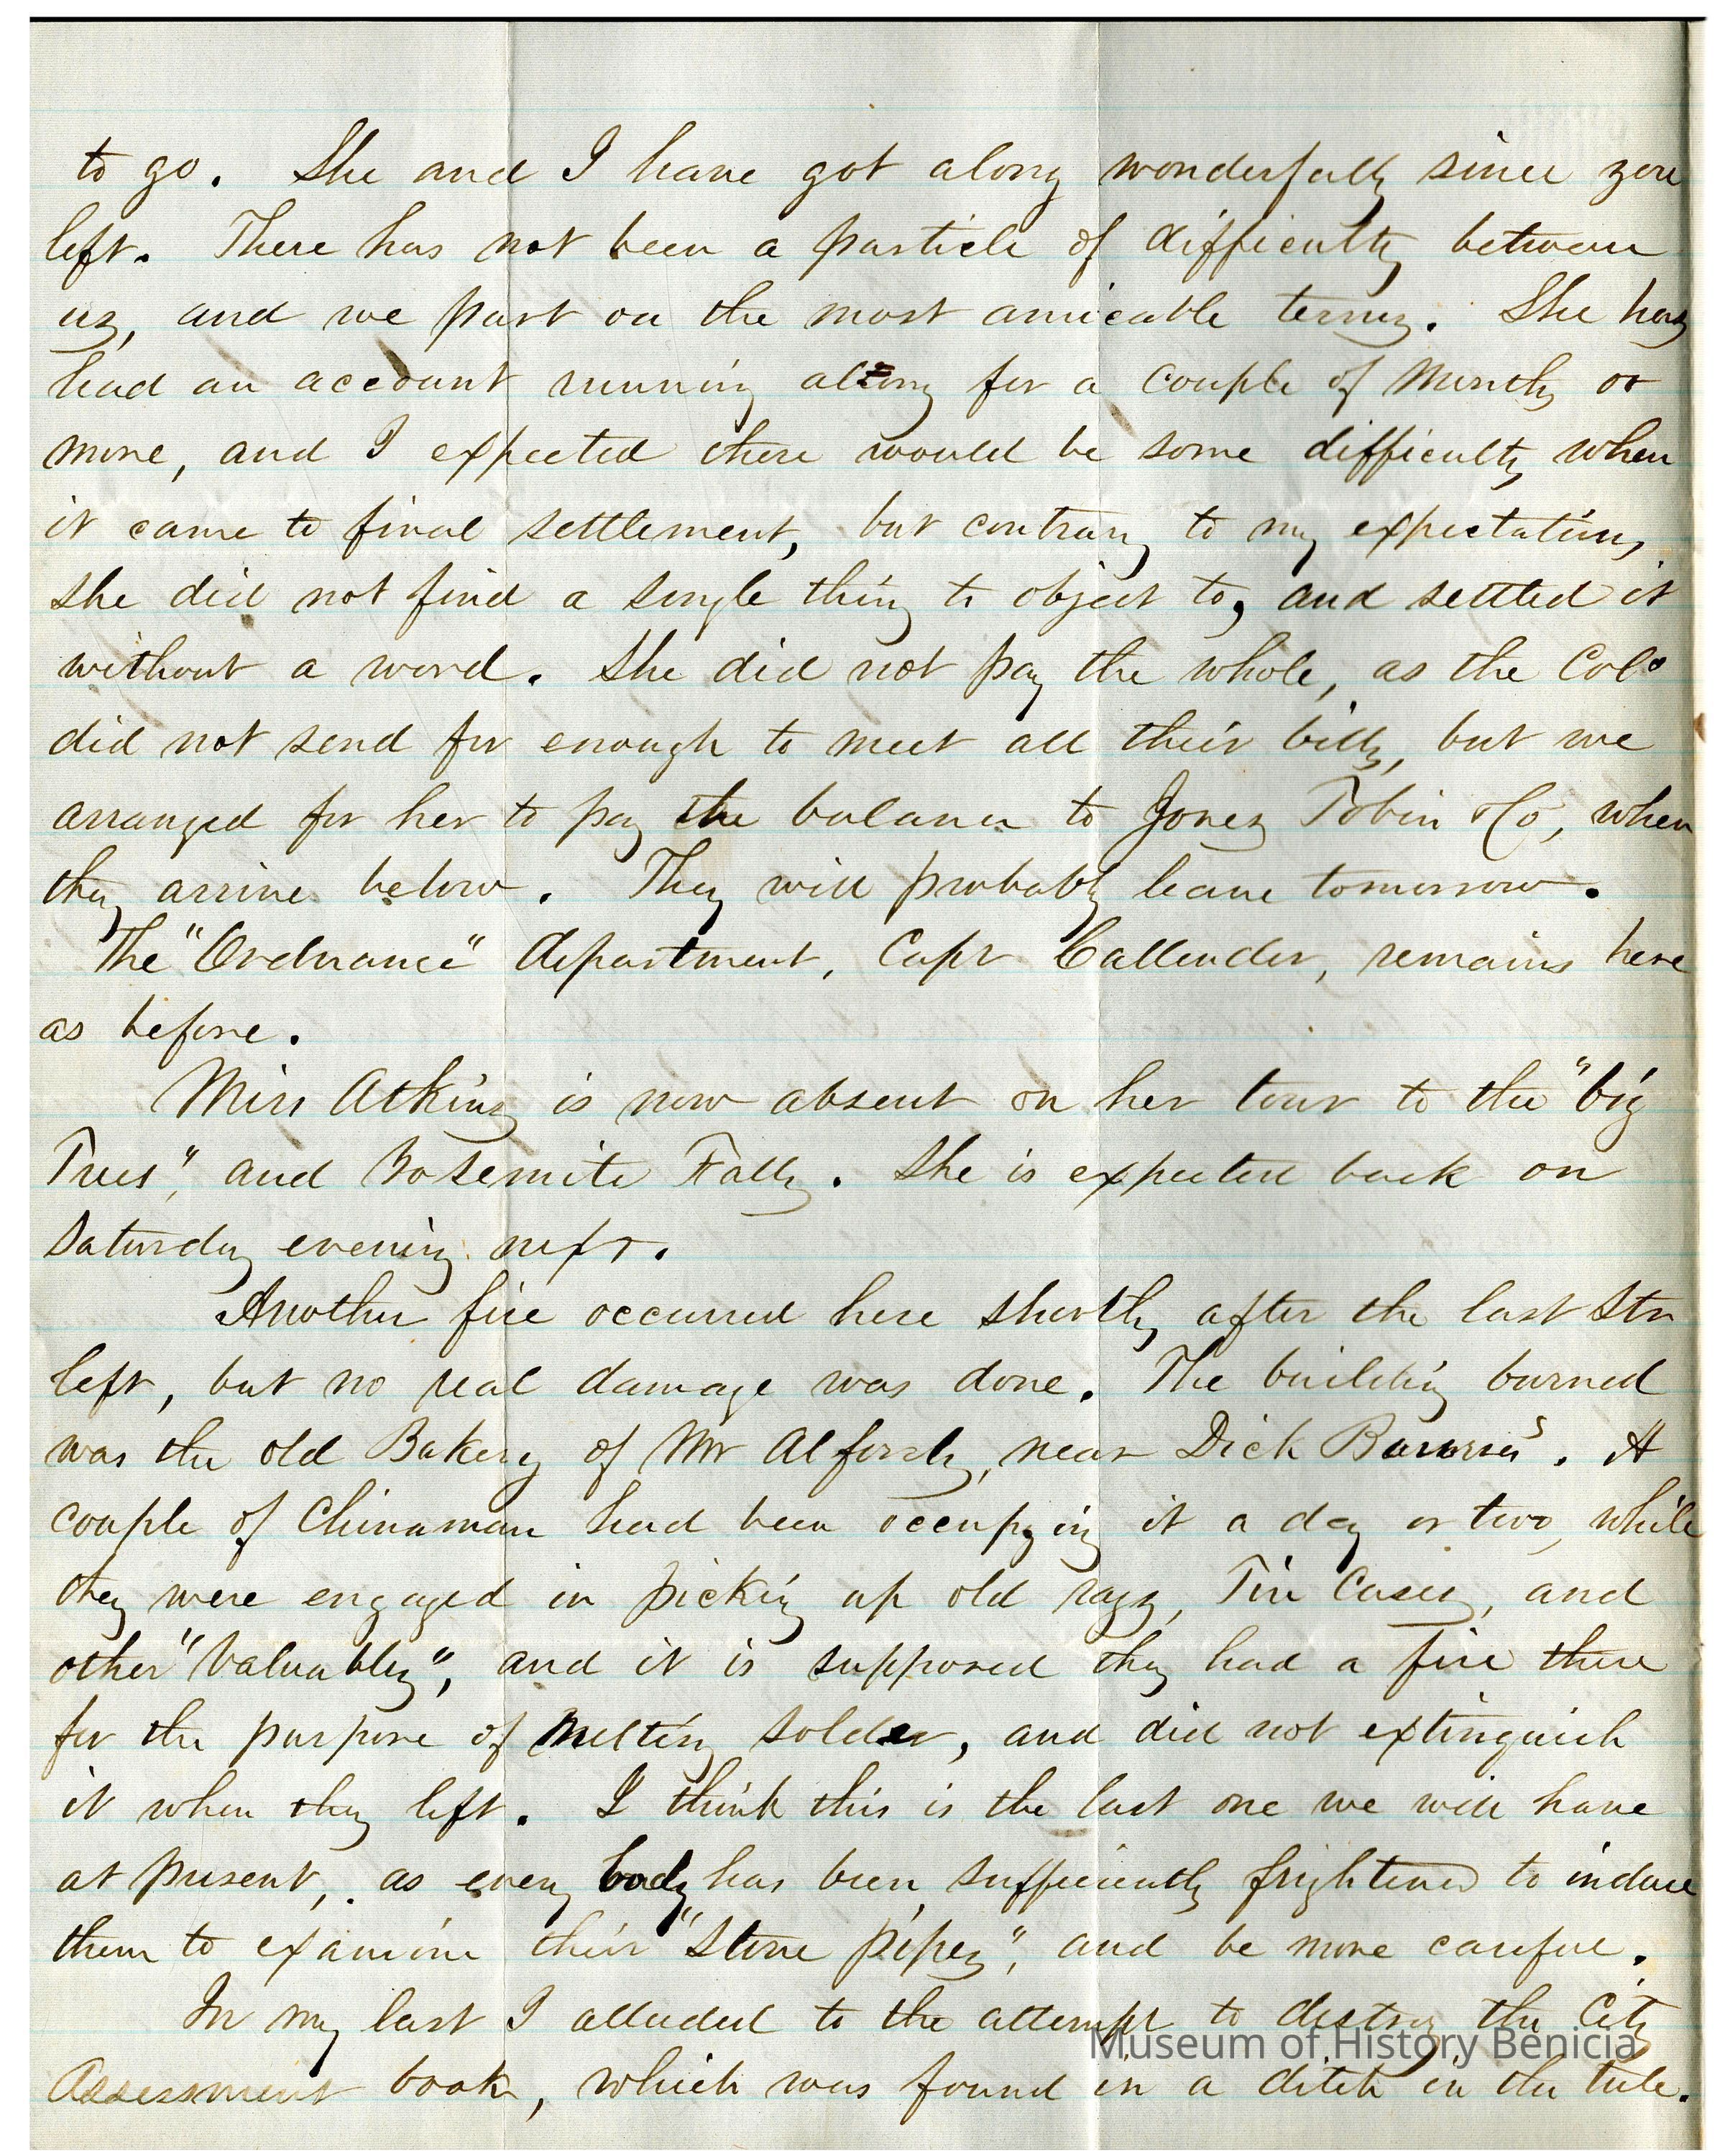 to go. She and I have got along wonderfully since you
left. There has not been a particle of difficulty between
us, and we part on the most amicable terms. She has
had an account running along for a couple of months or
more, and I expected there would be some difficulty when
it came to final settlement, but contrary to my expectations,
she did not find a single thing to object to, and settled it
without a word. She did not pay the whole, as the Colo
did not send for enough to meet all their bills, but we
arranged for her to pay the balance to Jones Tobin & Co, when
they arrive below. They will probably leave tomorrow.
The "Ordnance" department, Capt Callender, remains here
as before.
Miss Atkins is now absent on her tour to the "big
Trees", and Yosemite Falls. She is expected back on
Saturday evening next.
Another fire occurred here shortly after the last Str
left, but no real damage was done. The building burned
was the old Bakery of Mr Alfords, near Dick
A
couple of Chinaman had been occupying it a day or two, while
they were engaged in picking up old rags, Tin Cases, and
other "Valuables", and it is supposed they had a fire there
for the purpose of melting solder, and did not extinguish
it when they left. I think this is the last one we will have
at present, as every body has been sufficiently frightened to induce
them to examine their "Stove pipes", and be more careful.
In my last I alluded to the attempt to destroy the City
Assessment book, which was found in a ditch in the tule.
Museum of History Benicia